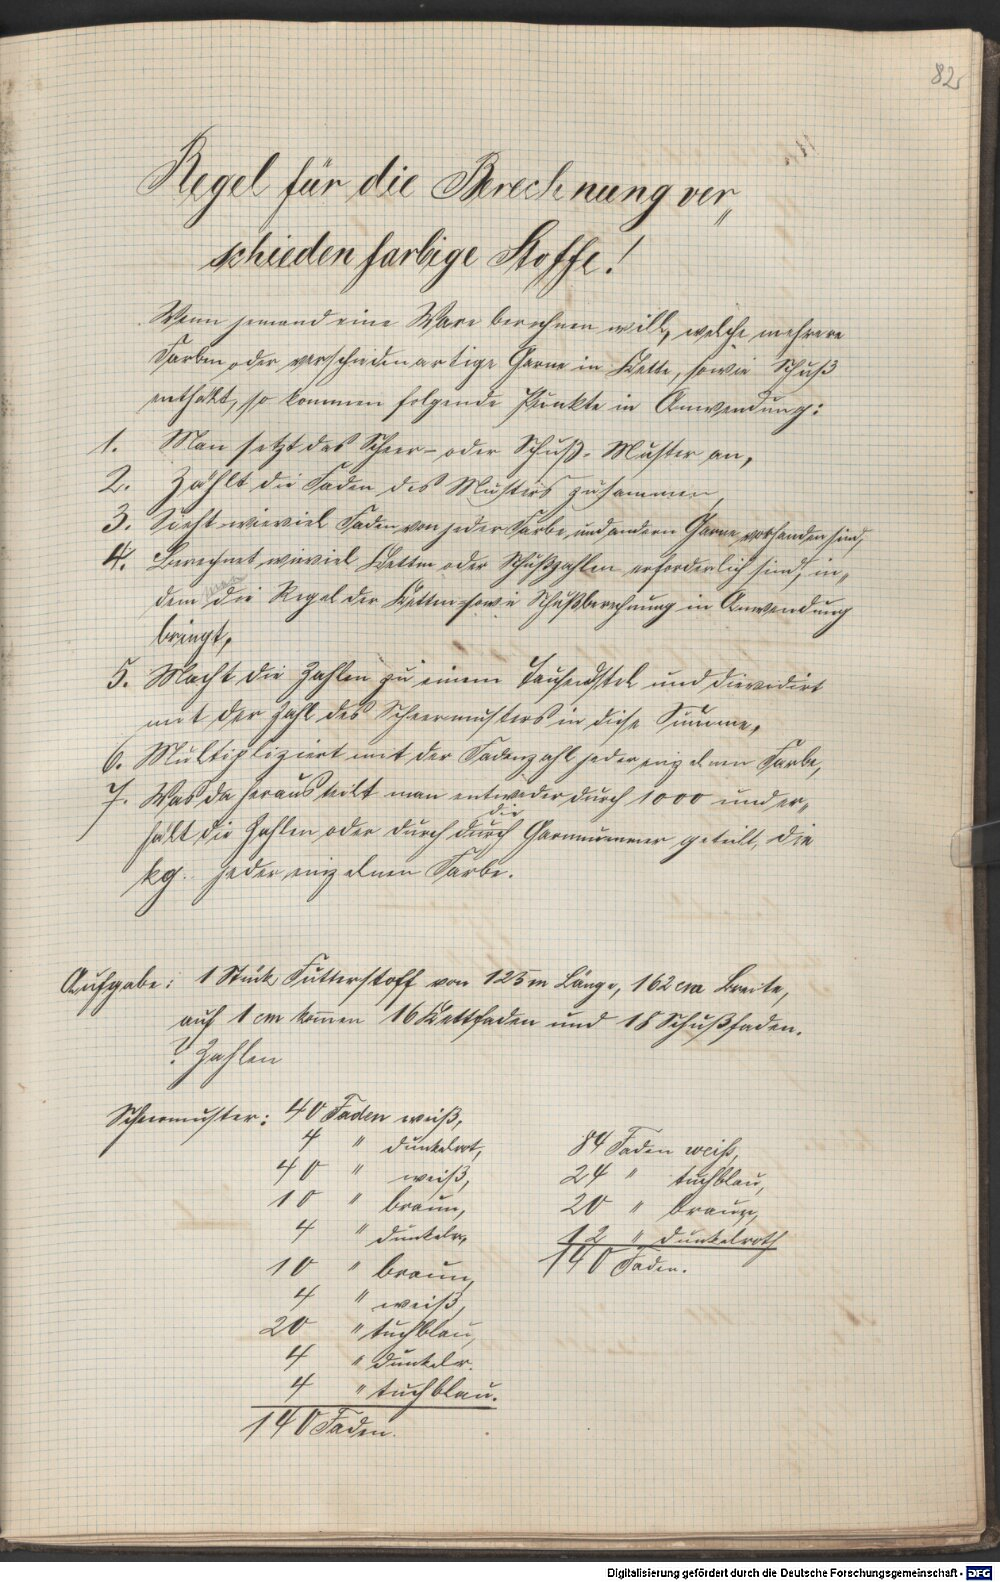 82
Regel für die Berechnung ver„
schiedenfarbige Stoffe!
Wenn jemand eine Ware berechnen will, welche mehrere
Farben oder verschiedenartige Garne in Kette, sowie Schuß
enthält, so kommen folgende Punkte in Anwendung:
1. Man setzt das Scheer- oder Schuß-Muster an,
2. Zählt die Faden des Musters zusammen,
3. Sieht wieviel Faden von jeder Farbe und andern Garne vorhanden sind,
4. Berechnet wieviel Ketten oder Schußzahlen erforderlich sind, in„
dem die Regel der Ketten- sowie Schußberechnung in Anwendung
bringt,
5. Macht die Zahlen zu einem Tausendstel und dievidirt
mit der Zahl des Scheermusters in diese Summe,
6. Multipliziert mit der Fadenzahl jeder einzelnen Farbe,
7. Was da heraus teilt man entweder durch 1000 und er„
die
hält die Zahlen oder durch durch Garnnummer geteilt, die
kg. jeder einzelnen Farbe.
Aufgabe: 1 Stück Futterstoff von 125 m Länge, 162 cm Breite,
auf 1 cm kommen 16 Kettfaden und 18 Schußfaden.
? Zahlen
Scheermuster: 40 Faden weiß,
4 " dunkelrot,
40 " weiß,
10 " braun,
4 " dunkelr,
10 " braun,
4 " weiß,
20 " tuchblau,
4 " dunkelr.
4 " tuchblau.
140 Faden.
84 Faden weiß,
24 " tuchblau,
20 " braun,
12 " dunkelroth
140 Faden.
Digitalisierung gefördert durch die Deutsche Forschungsgemeinschaft - DFG